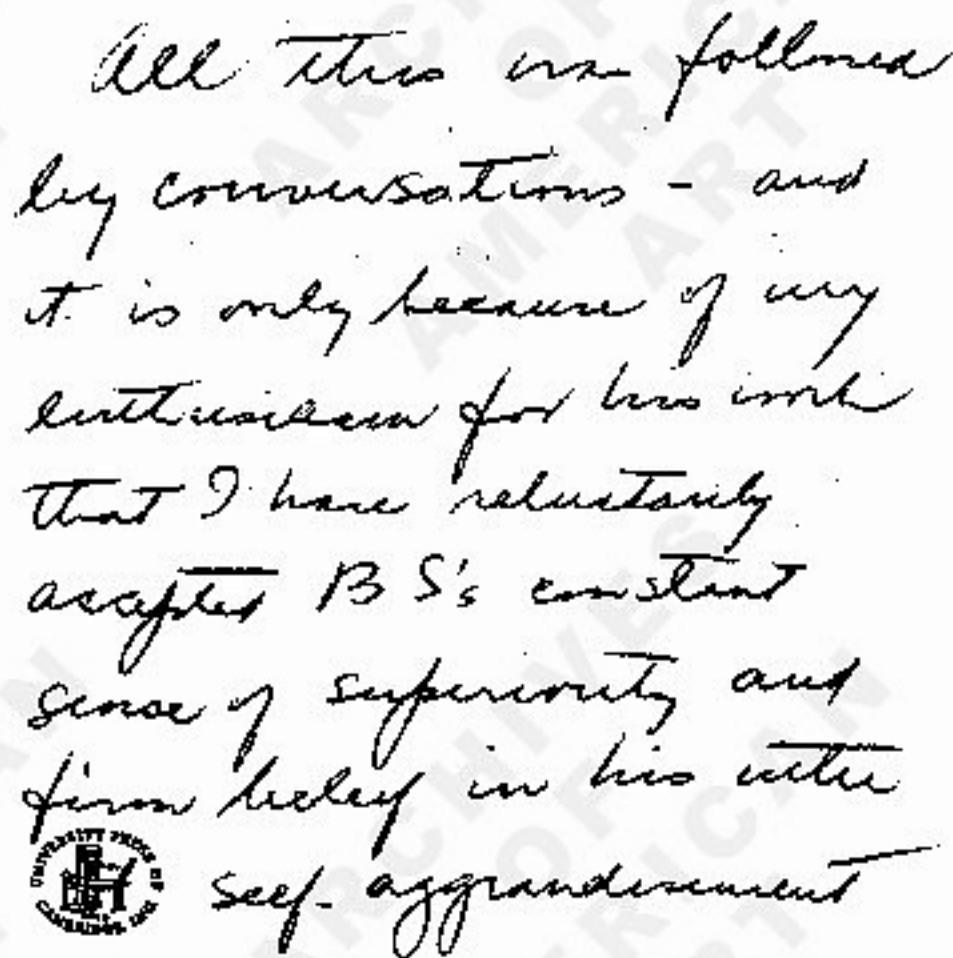 All this was followed
by conversations - and
it is only because of my
enthusiasm for his work
that I have reluctantly
accepted B S's constant
sense of superiority and
firm belief in his utter
self-aggrandisement
UNIVERSITY PRESS OF
CAMBRIDGE, INC.
ARCHIVES
OF
AMERICAN
ART